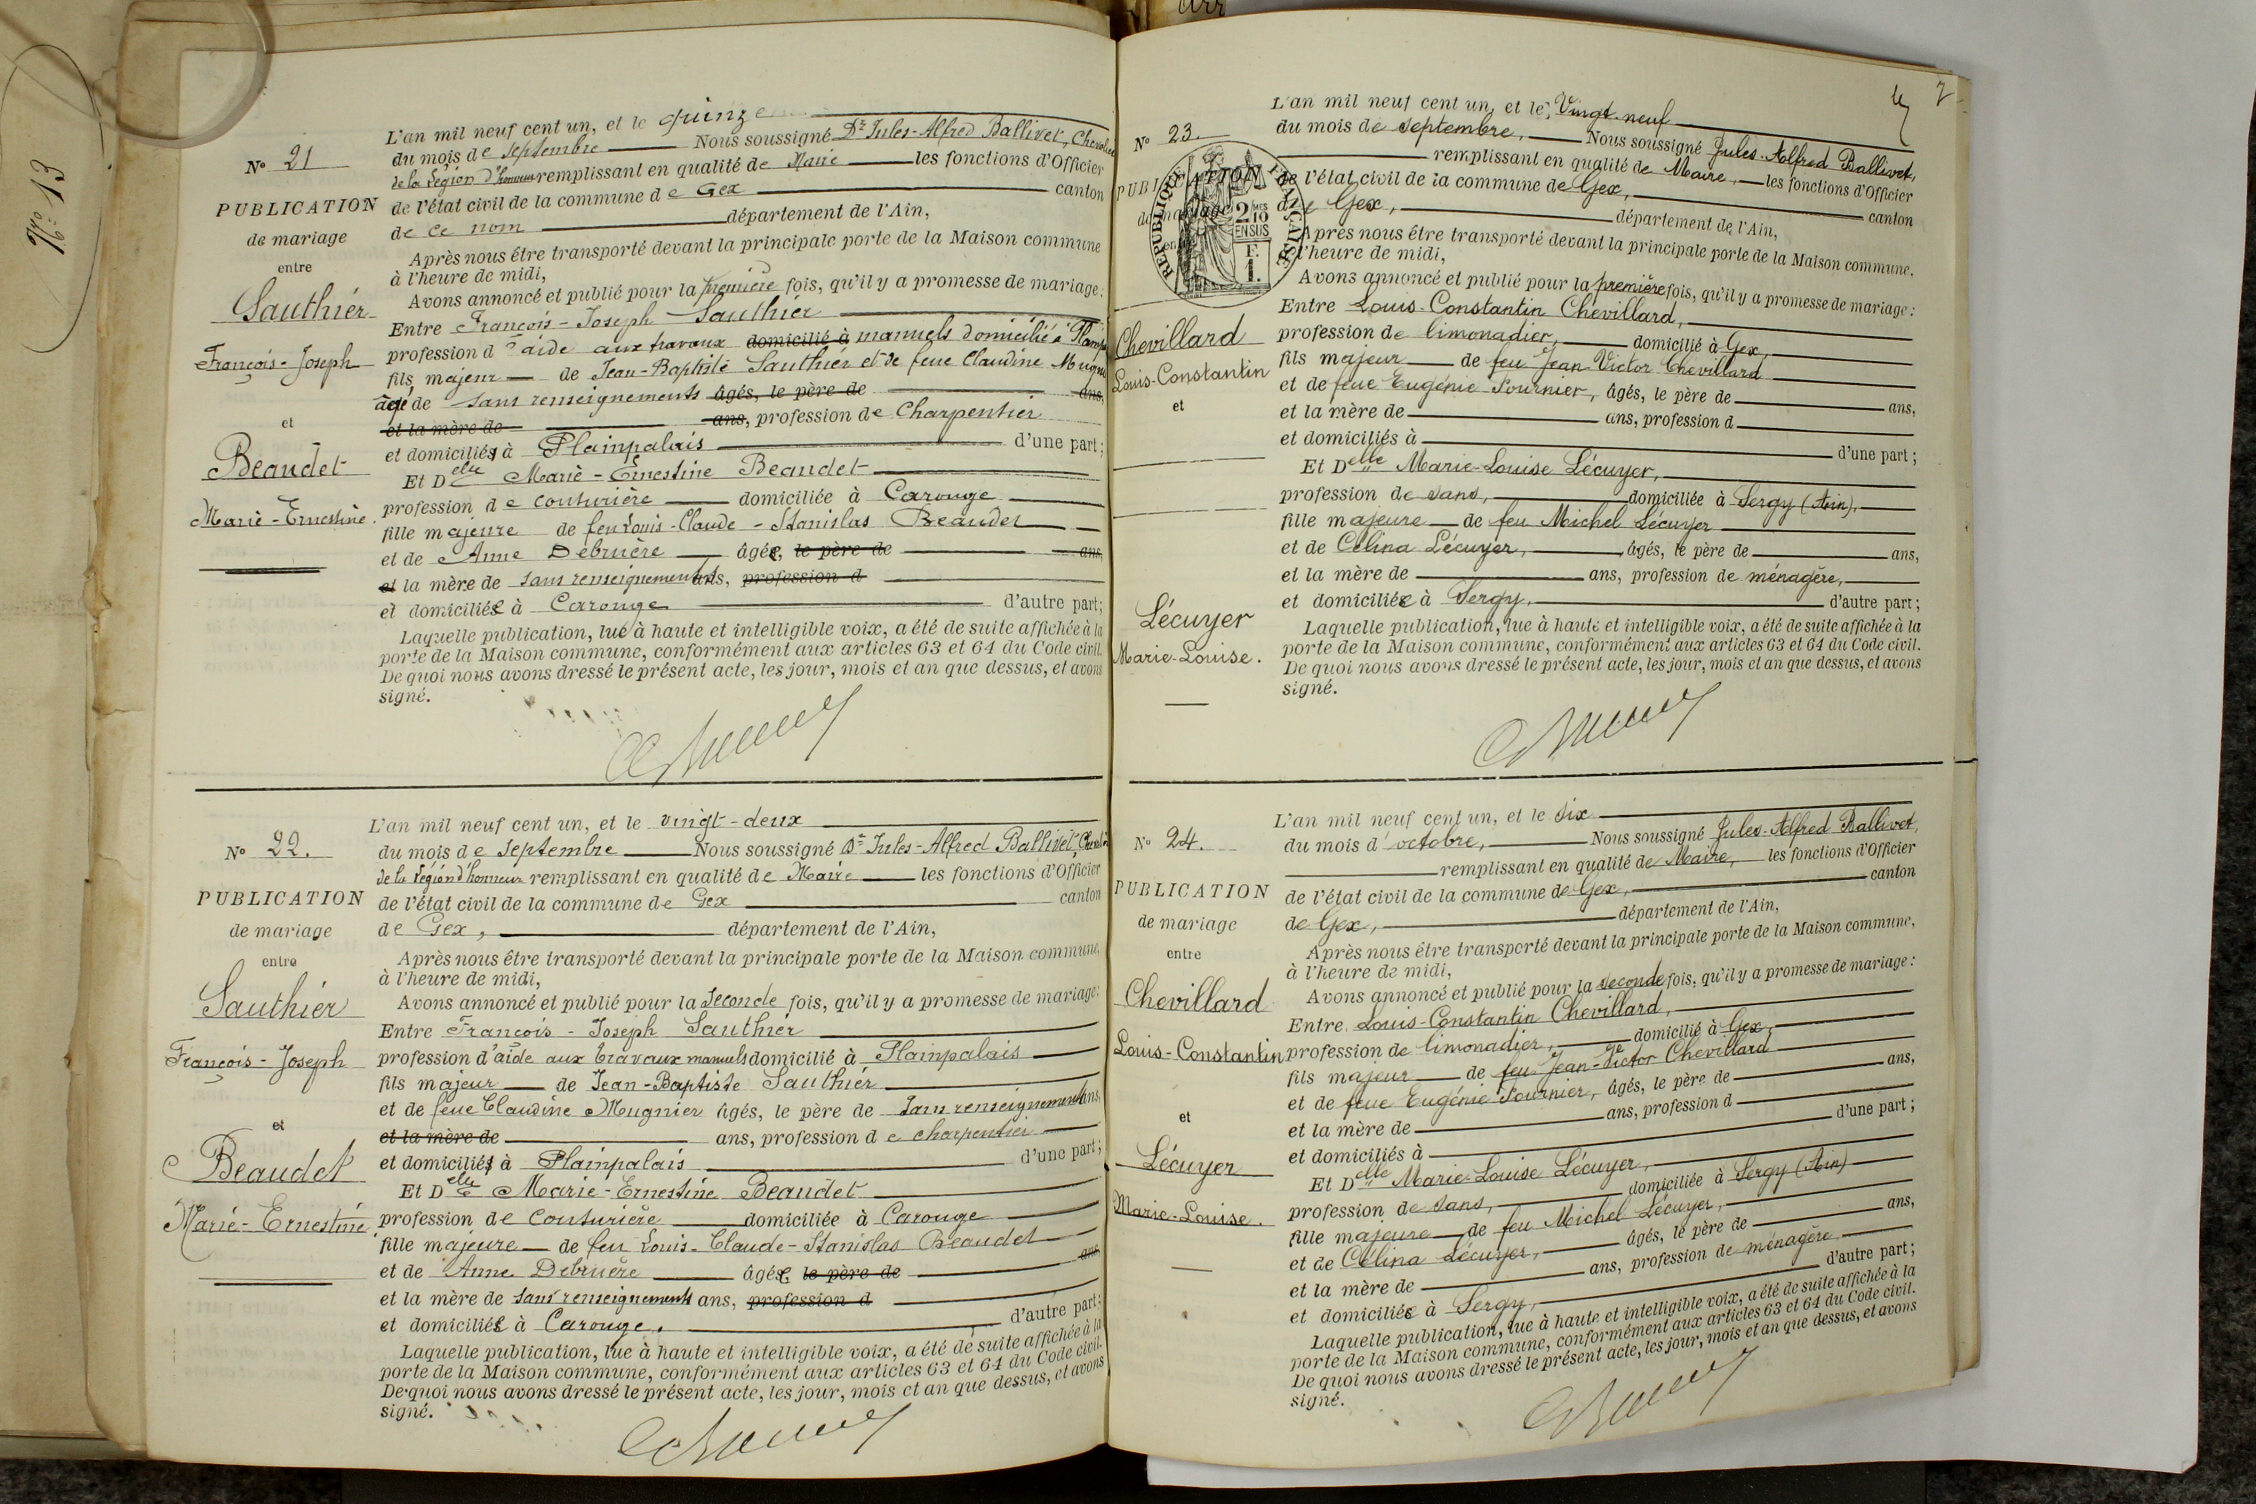 No 13
N° 21
PUBLICATION
de mariage
entre
Sauthier
François-Joseph
et
Beaudet
Marie-Ernestine
L'an mil neuf cent un, et le quinze
du mois de septembre Nous soussigné Dr Jules-Alfred Ballivet, Chevalier
de la Légion d'honneur remplissant en qualité de Maire les fonctions d'Officier
de l'état civil de la commune de Gex canton
de ce nom département de l'Ain,
Après nous être transporté devant la principale porte de la Maison commune
à l'heure de midi,
Avons annoncé et publié pour la première fois, qu'il y a promesse de mariage:
Entre François-Joseph Sauthier
profession d'aide aux travaux domicilié à manuels domicilié à Plainp
fils majeur de Jean-Baptiste Sauthier et de feue Claudine Mugnier
âgé de sans renseignements âgés, le père de ans,
et la mère de ans, profession de Charpentier
et domiciliés à Plainpalais d'une part;
Et Delle Marie-Ernestine Beaudet
profession de couturière domiciliée à Carouge
fille majeure de feu Louis-Claude-Stanislas Beaudet
et de Anne Debruère âgée, le père de ans,
et la mère de sans renseignements ans, profession d
et domiciliée à Carouge d'autre part;
Laquelle publication, lue à haute et intelligible voix, a été de suite affichée à la
porte de la Maison commune, conformément aux articles 63 et 64 du Code civil.
De quoi nous avons dressé le présent acte, les jour, mois et an que dessus, et avons
signé.
N° 22.
PUBLICATION
de mariage
entre
Sauthier
François-Joseph
et
Beaudet
Marie-Ernestine
L'an mil neuf cent un, et le vingt-deux
du mois de septembre Nous soussigné Dr Jules-Alfred Ballivet, Chevalier
de la Légion d'honneur remplissant en qualité de Maire les fonctions d'Officier
de l'état civil de la commune de Gex canton
de Gex, département de l'Ain,
Après nous être transporté devant la principale porte de la Maison commune,
à l'heure de midi,
Avons annoncé et publié pour la seconde fois, qu'il y a promesse de mariage:
Entre François-Joseph Sauthier
profession d'aide aux travaux manuels domicilié à Plainpalais
fils majeur de Jean-Baptiste Sauthier
et de feue Claudine Mugnier âgés, le père de sans renseignements ans,
et la mère de ans, profession de charpentier
et domiciliés à Plainpalais d'une part;
Et Delle Marie-Ernestine Beaudet
profession de couturière domiciliée à Carouge
fille majeure de feu Louis-Claude-Stanislas Beaudet
et de Anne Debruère âgée, le père de ans,
et la mère de sans renseignements ans, profession d
et domiciliée à Carouge. d'autre part;
Laquelle publication, lue à haute et intelligible voix, a été de suite affichée à la
porte de la Maison commune, conformément aux articles 63 et 64 du Code civil.
De quoi nous avons dressé le présent acte, les jour, mois et an que dessus, et avons
signé.
2
N° 23.
PUBLICATION
de mariage
entre
RÉPUBLIQUE FRANÇAISE
2 MES 10
EN SUS
F.
1.
Chevillard
Louis-Constantin
et
Lécuyer
Marie-Louise.
L'an mil neuf cent un, et le Vingt-neuf
du mois de septembre, Nous soussigné Jules-Alfred Ballivet,
remplissant en qualité de Maire, les fonctions d'Officier
de l'état civil de la commune de Gex, canton
de Gex, département de l'Ain,
Après nous être transporté devant la principale porte de la Maison commune,
à l'heure de midi,
Avons annoncé et publié pour la première fois, qu'il y a promesse de mariage:
Entre Louis-Constantin Chevillard,
profession de limonadier, domicilié à Gex,
fils majeur de feu Jean-Victor Chevillard
et de feue Eugénie Fournier, âgés, le père de ans,
et la mère de ans, profession d
et domiciliés à d'une part;
Et Delle Marie-Louise Lécuyer,
profession de sans, domiciliée à Sergy (Ain),
fille majeure de feu Michel Lécuyer
et de Célina Lécuyer, âgés, le père de ans,
et la mère de ans, profession de ménagère,
et domiciliée à Sergy, d'autre part;
Laquelle publication, lue à haute et intelligible voix, a été de suite affichée à la
porte de la Maison commune, conformément aux articles 63 et 64 du Code civil.
De quoi nous avons dressé le présent acte, les jour, mois et an que dessus, et avons
signé.
N° 24.
PUBLICATION
de mariage
entre
Chevillard
Louis-Constantin
et
Lécuyer
Marie-Louise.
L'an mil neuf cent un, et le six
du mois d'octobre, Nous soussigné Jules-Alfred Ballivet,
remplissant en qualité de Maire, les fonctions d'Officier
de l'état civil de la commune de Gex, canton
de Gex, département de l'Ain,
Après nous être transporté devant la principale porte de la Maison commune,
à l'heure de midi,
Avons annoncé et publié pour la seconde fois, qu'il y a promesse de mariage:
Entre Louis-Constantin Chevillard,
profession de limonadier, domicilié à Gex,
fils majeur de feu Jean-Victor Chevillard
et de feue Eugénie Fournier, âgés, le père de ans,
et la mère de ans, profession d
et domiciliés à d'une part;
Et Delle Marie-Louise Lécuyer,
profession de sans, domiciliée à Sergy (Ain)
fille majeure de feu Michel Lécuyer,
et de Célina Lécuyer, âgés, le père de ans,
et la mère de ans, profession de ménagère
et domiciliée à Sergy, d'autre part;
Laquelle publication, lue à haute et intelligible voix, a été de suite affichée à la
porte de la Maison commune, conformément aux articles 63 et 64 du Code civil.
De quoi nous avons dressé le présent acte, les jour, mois et an que dessus, et avons
signé.